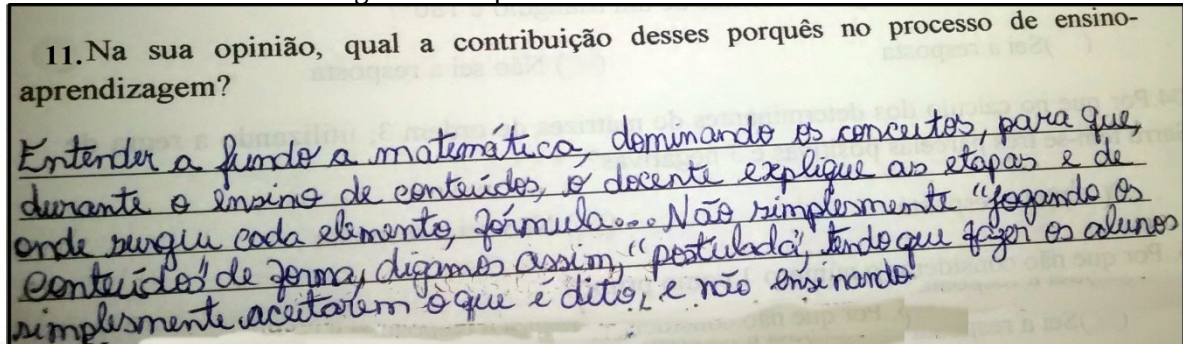 11. Na sua opinião, qual a contribuição desses porquês no processo de ensino-
aprendizagem?
Entender a fundo a matemática, dominando os conceitos, para que,
durante o ensino de conteúdos, o docente explique as etapas e de
onde surgiu cada elemento, fórmula... Não simplesmente "jogando os
conteúdos" de forma, digamos assim, "postulada", tendo que fazer os alunos
simplesmente aceitarem o que é dito, e não ensinando